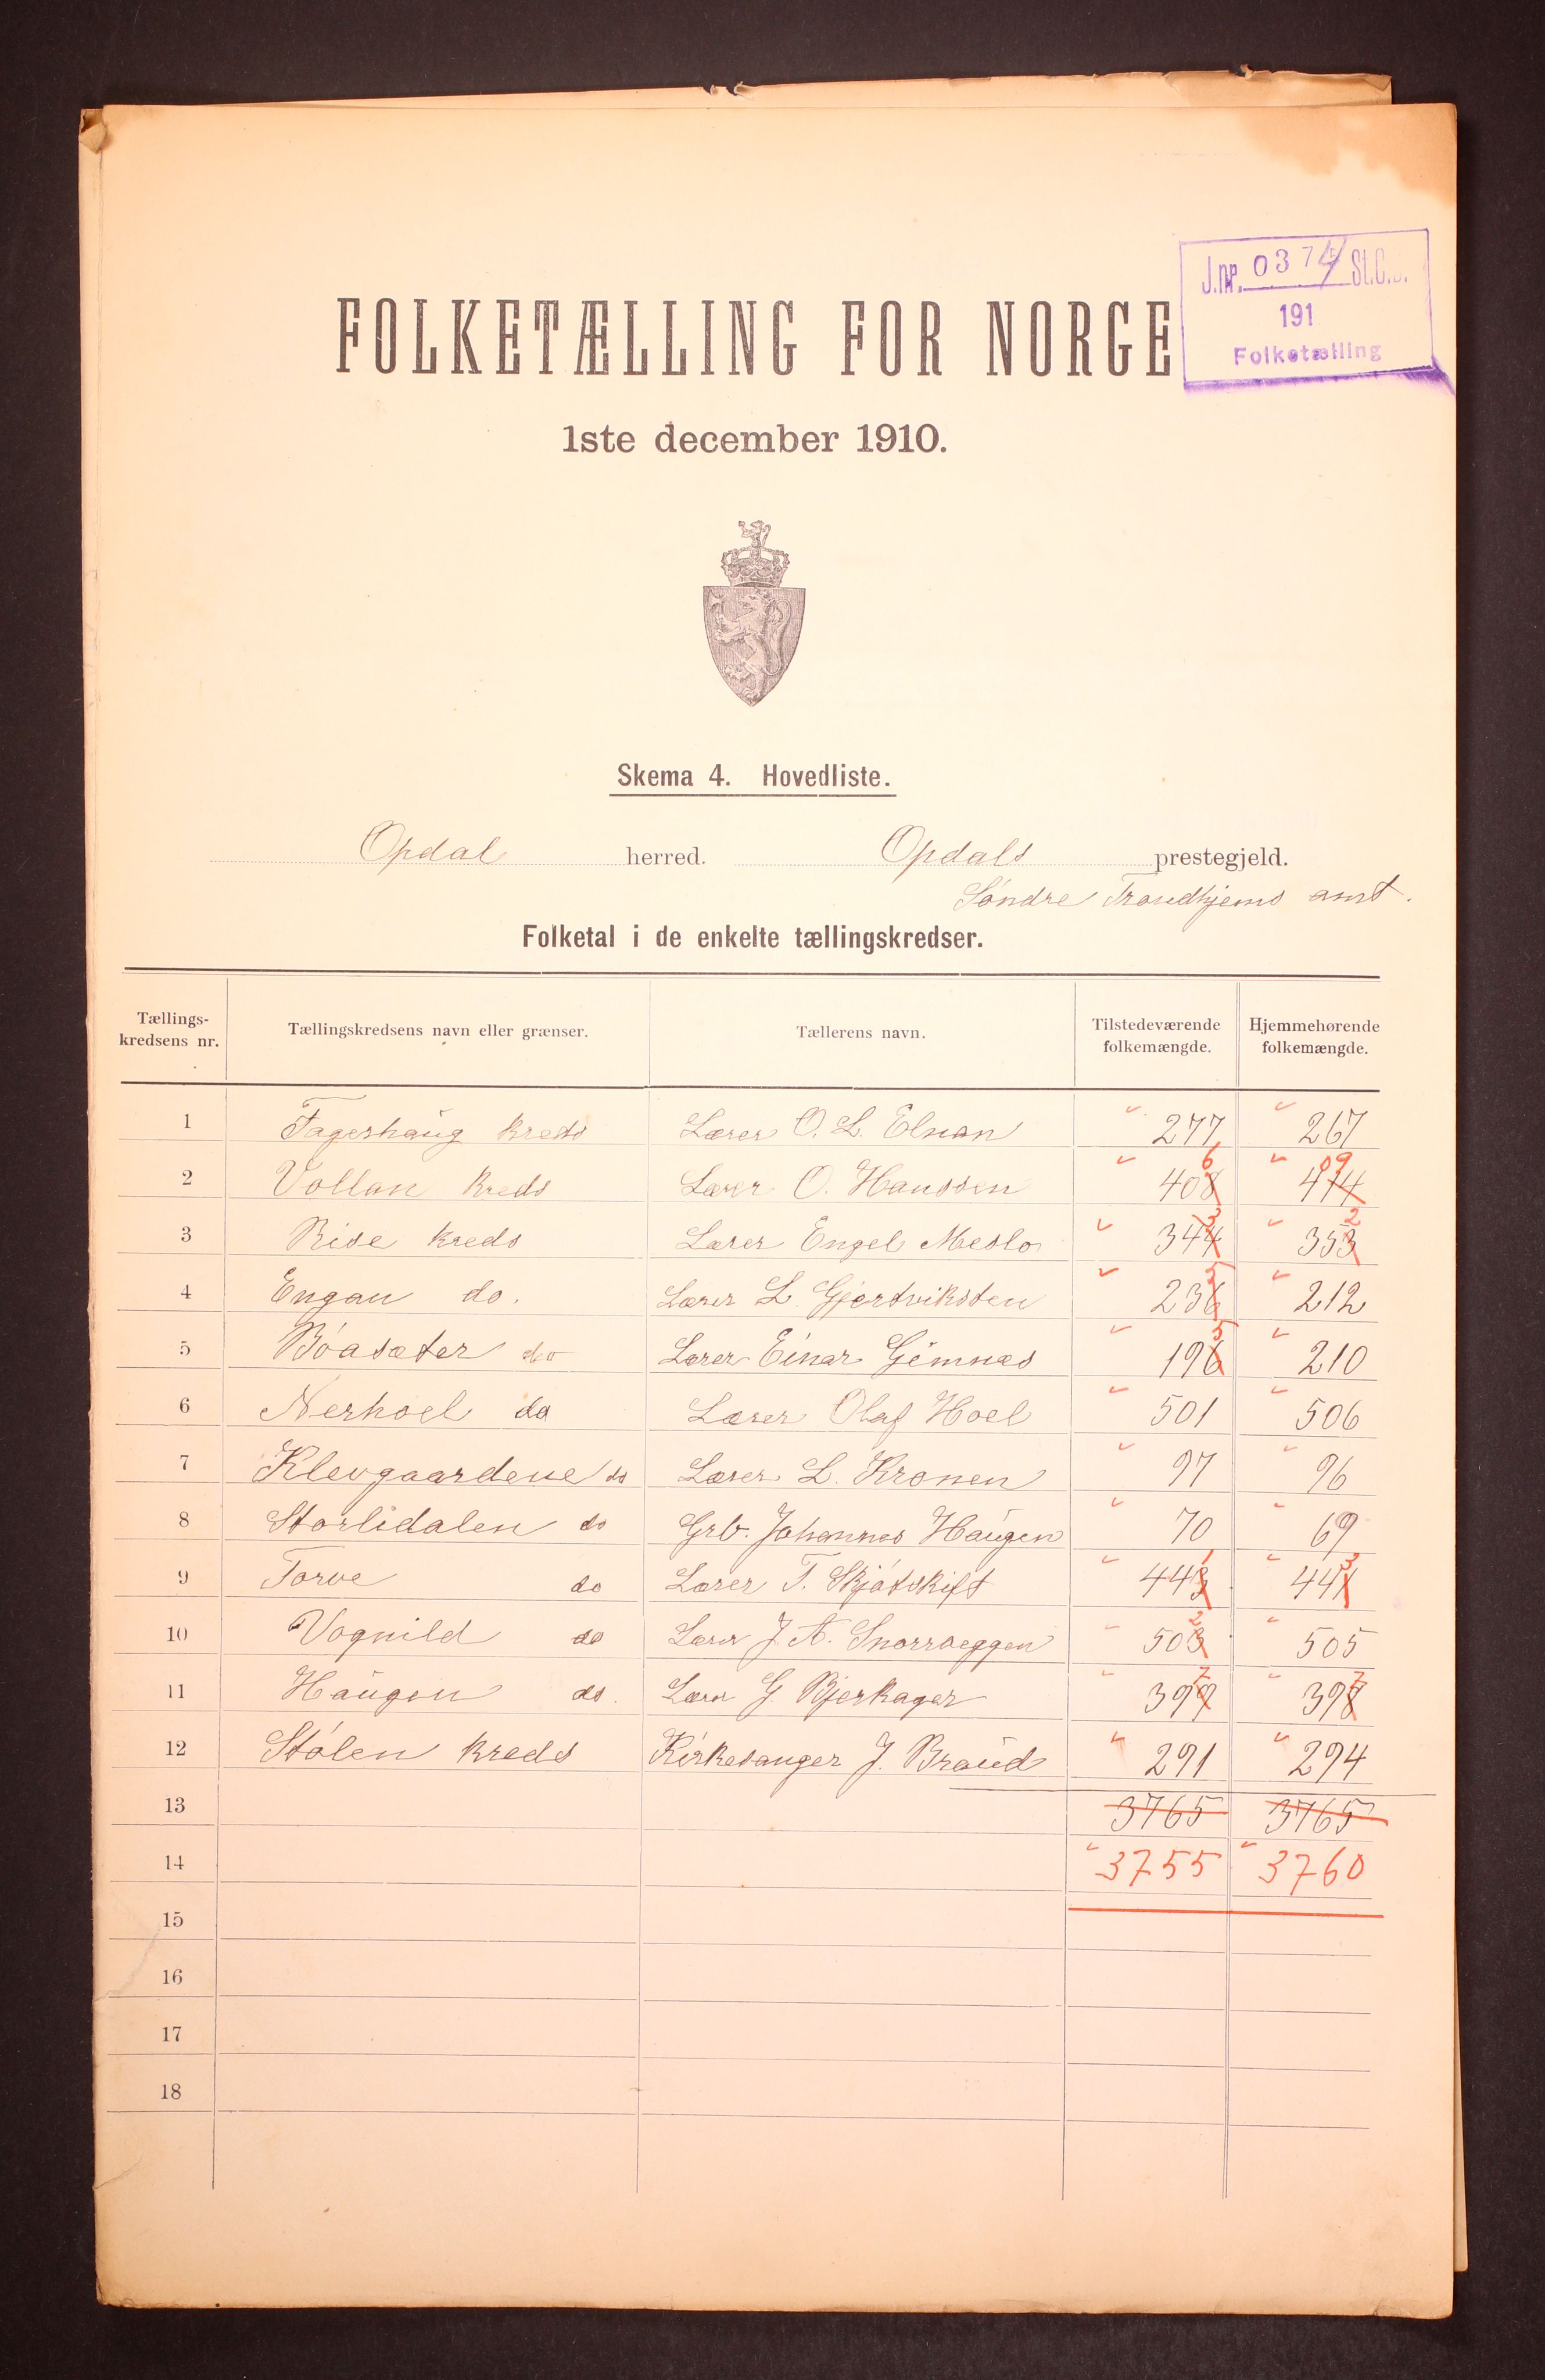 J.nr. 0374 St.C.B.
191
Folketælling
FOLKETÆLLING FOR NORGE
1ste december 1910.
Skema 4. Hovedliste.
Opdal herred. Opdals prestegjeld.
Søndre Trondhjems amt.
Folketal i de enkelte tællingskredser.
Tællings-kredsens nr. Tællingskredsens navn eller grænser. Tællerens navn. Tilstedeværende folkemængde. Hjemmehørende folkemængde.
1 Fagerhaug kreds Lærer O. L. Elnan 277 267
2 Vollan kreds Lærer O. Hanssen 408 6 414 09
3 Rise kreds Lærer Engel Meslo 344 3 353 2
4 Engan do. Lærer L. Gjertviksten 236 5 212
5 Bóasæter do Lærer Einar Gimnæs 196 5 210
6 Nerhoel do Lærer Olaf Hoel 501 506
7 Klevgaardene do Lærer L. Kronen 97 96
8 Storlidalen do Grb. Johannes Haugen 70 69
9 Torve do Lærer T. Skjøtskift 443 1 441 3
10 Vognild do Lærer J. A. Snorroeggen 503 2 505
11 Haugen do. Lærer G. Bjerkager 399 7 398 7
12 Stølen kreds Kirkesanger J. Braud 291 294
13 3765 3765
14 3755 3760
15
16
17
18